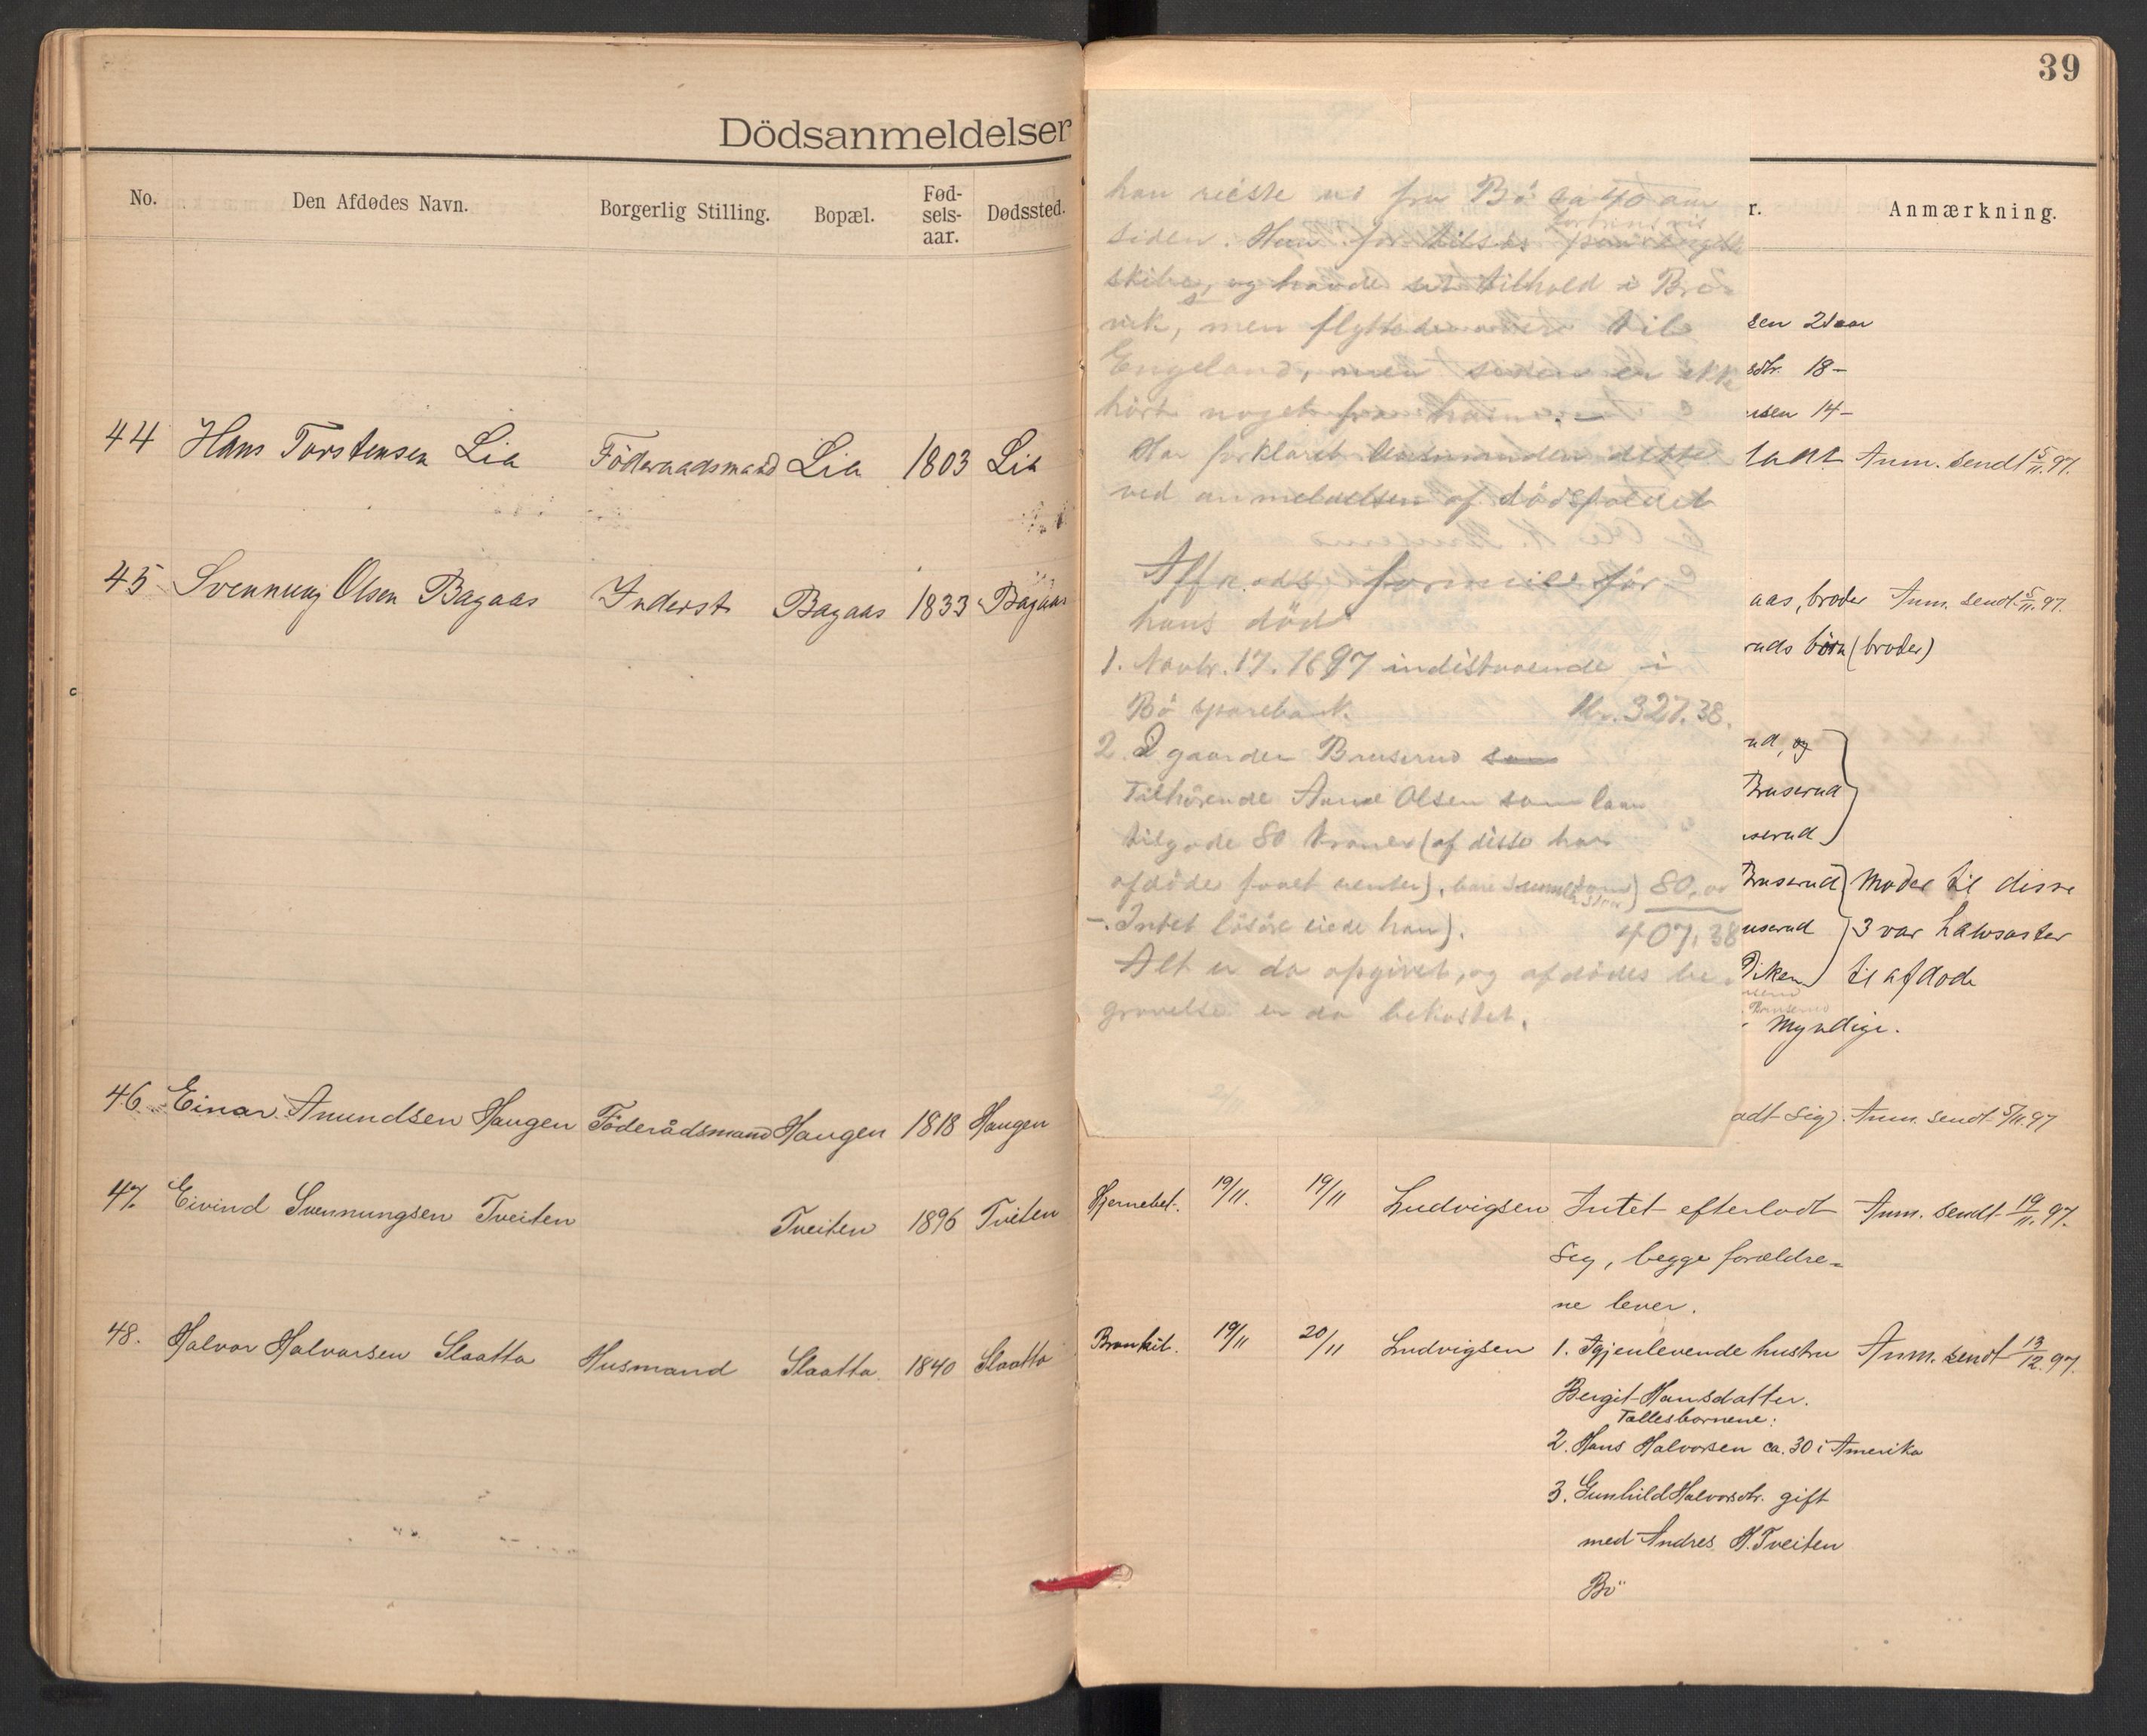 39
Dödsanmeldelser
No. Den Afdødes Navn. Borgerlig Stilling. Bopæl. Fød-
sels-
aar. Dødssted.
44 Hans Torstensen Lia Föderaadsmand Lia 1803 Lia
45 Svennung Olsen Bagaas Inderst Bagaas 1833 Bagaas
46 Einar Amundsen Haugen Föderådsmand Haugen 1818 Haugen
47. Eivind Svennungsen Tveiten Tveiten 1896 Tveiten
48. Halvor Halvorsen Slaatta Husmand Slaatta 1840 Slaatta
han reiste ud fra Bö ca 40 aar
siden. Han for tilsös
skibe, og havde sit tilhold i Bre-
vik, men flyttede over til
Engeland, men siden er ikke
hört noget fra ham. –
Har forklaret lensmanden dette
ved anmeldelsen af dödsfaldet
formue för
hans död
1. Novbr. 17. 1897 indestaaende i
Bö sparebank. Kr. 327.38.
2. I gaarden Bruserud som
Tilhörende Anne Olsen som laan
tilgode 80 kroner (af disse har
afdöde faaet renter), 80,00
–. Intet lösöre eiede han). 407,38
Alt er da opgivet, og afdödes be
gravelse er da bekostet.
r. Anmærkning.
sen 21 aar
sdtr. 18 –
sen 14 –
Anm. sendt 15/11. 97.
aas, broder Anm. sendt 5/11. 97.
ruds börn (broder)
ud, og
Bruserud
userud
Bruserud Moder til disse
userud 3 var halvsøster
til afdøde
Myndige.
adt sig). Anm. sendt 5/11. 97
Hjernebet. 19/11. 19/11 Ludvigsen Intet efterladt Anm. sendt 19/11. 97.
sig, begge forældre-
ne lever.
19/11 20/11 Ludvigsen 1. Igjenlevende hustru Anm. sendt 13/12. 97.
Bergit Hansdatter.
Fællesbørnene:
2. Hans Halvorsen ca. 30 i Amerika
3. Gunhild Halvorsdtr. gift
med Andres H. Tveiten
Bö